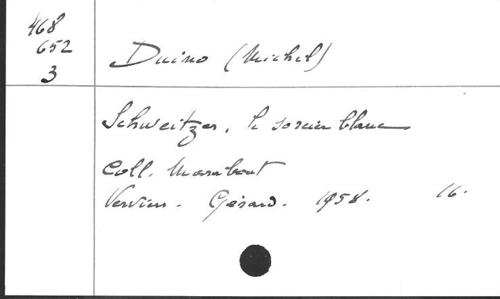 468
652
3
Duino (Michel)
Schweitzer, le sorcier blanc
Coll. Marabout
Verviers. Gérard. 1958. 16.